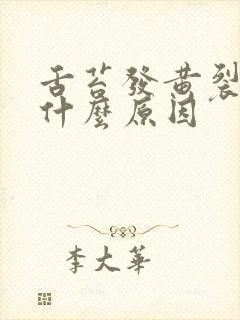 舌苔發黄裂
什麼原因
李大華